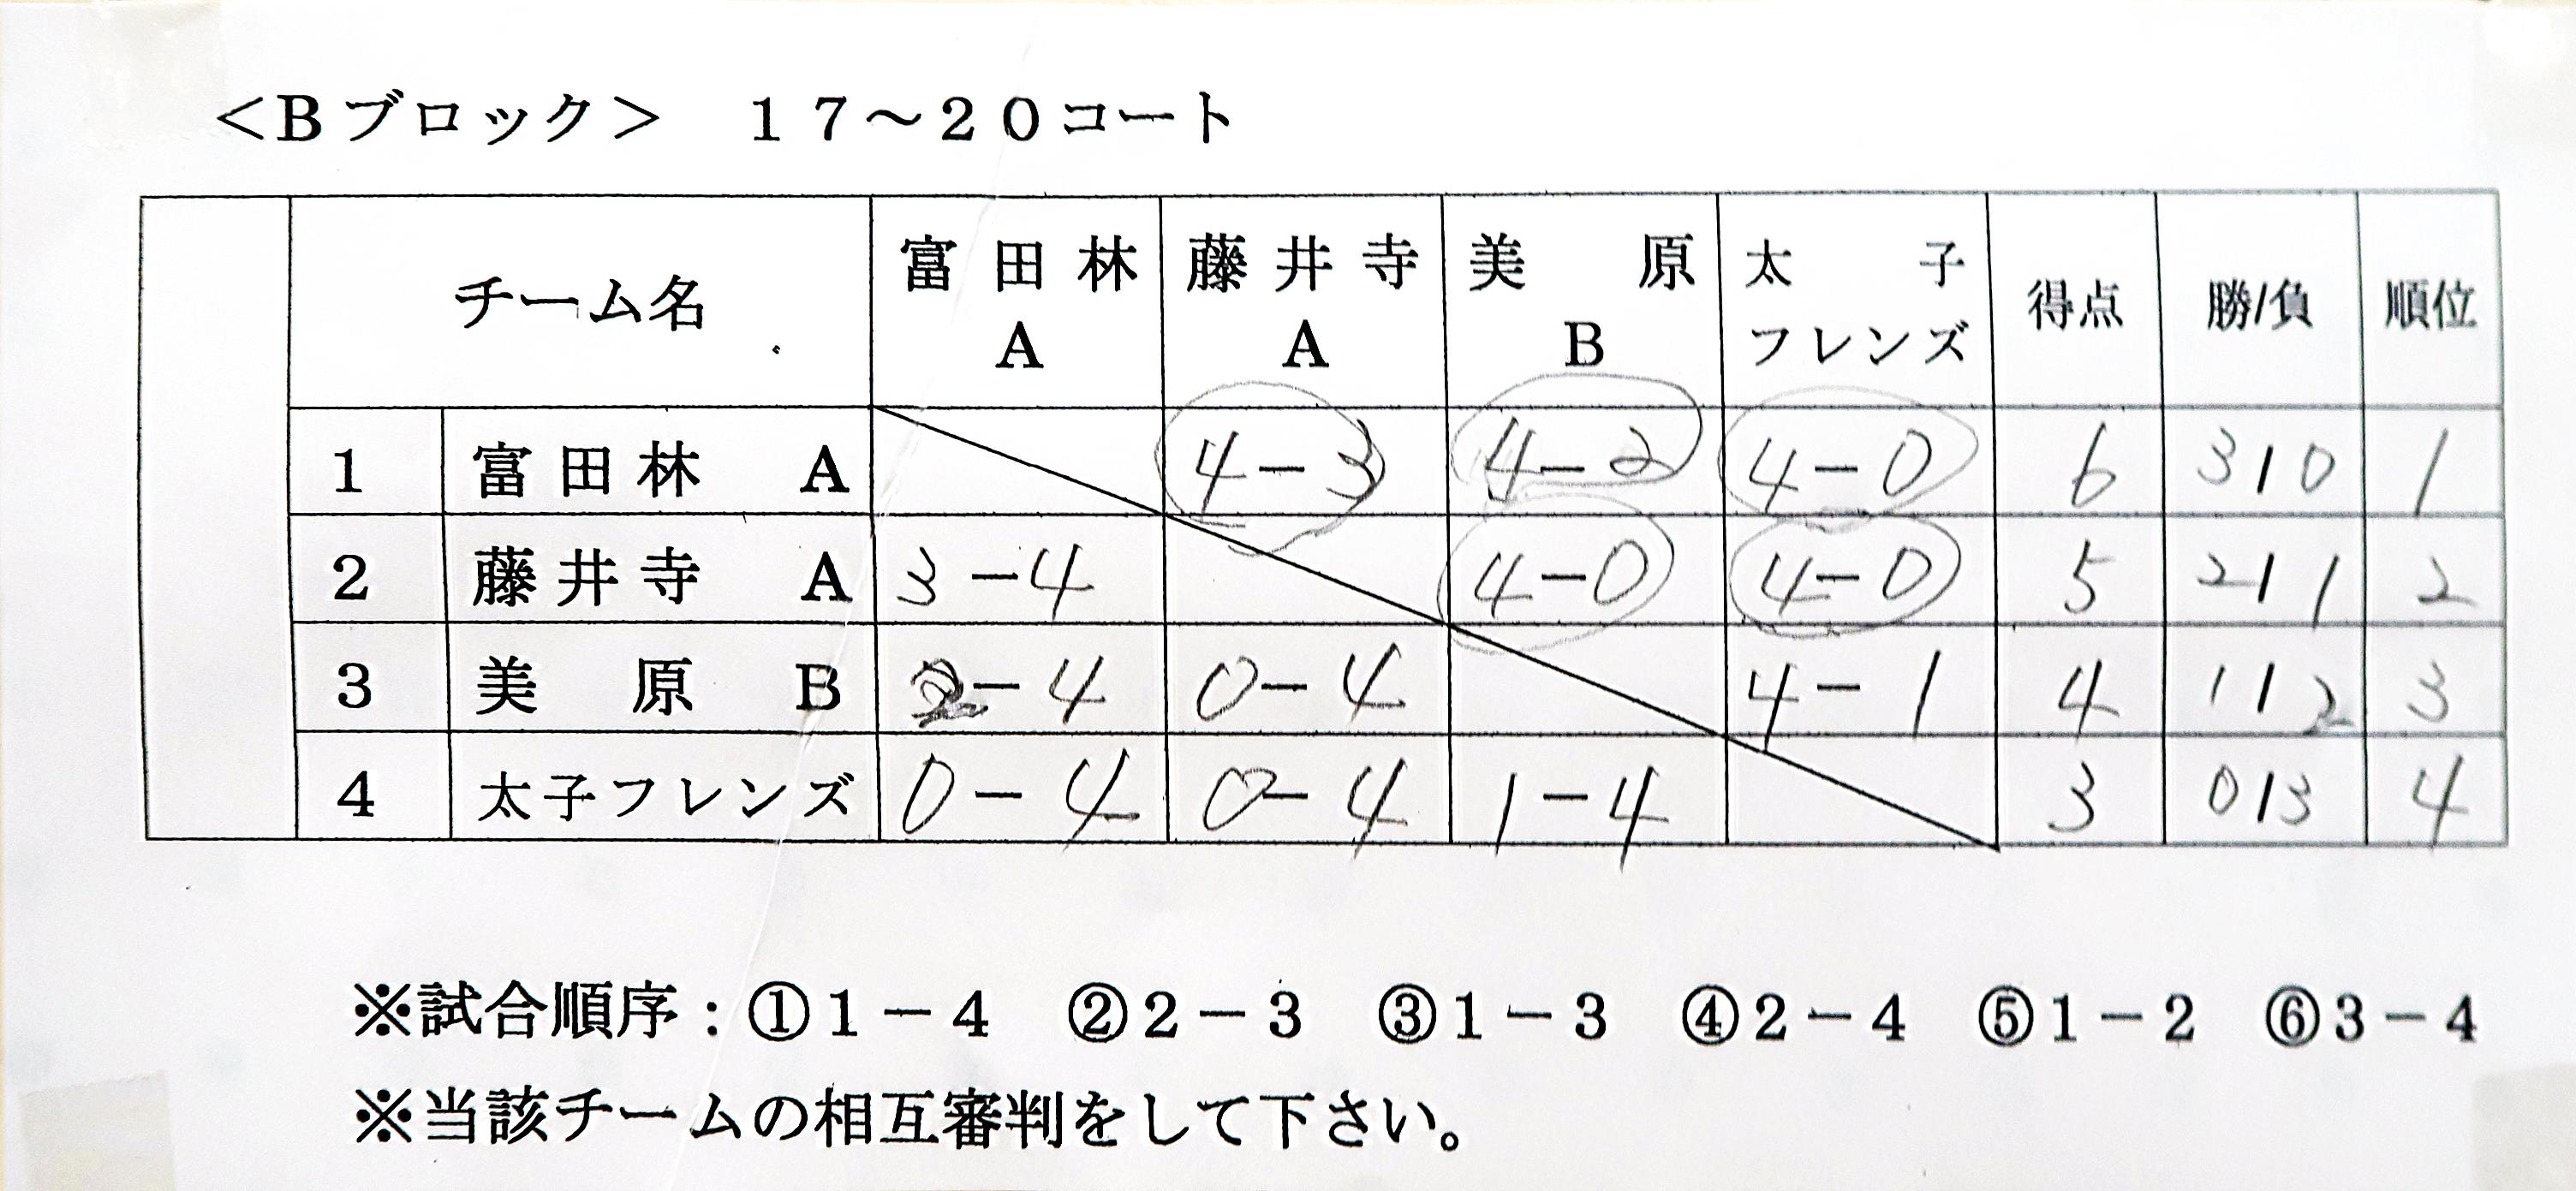 ＜Bブロック＞　１７～２０コート
チーム名 富田林A 藤井寺A 美原B 太子フレンズ 得点 勝/負 順位
1 富田林 A 4－3 4－2 4－0 6 3/0 1
2 藤井寺 A 3－4 4－0 4－0 5 2/1 2
3 美原 B 2－4 0－4 4－1 4 1/2 3
4 太子フレンズ 0－4 0－4 1－4 3 0/3 4
※試合順序：①１－４　②２－３　③１－３　④２－４　⑤１－２　⑥３－４
※当該チームの相互審判をして下さい。